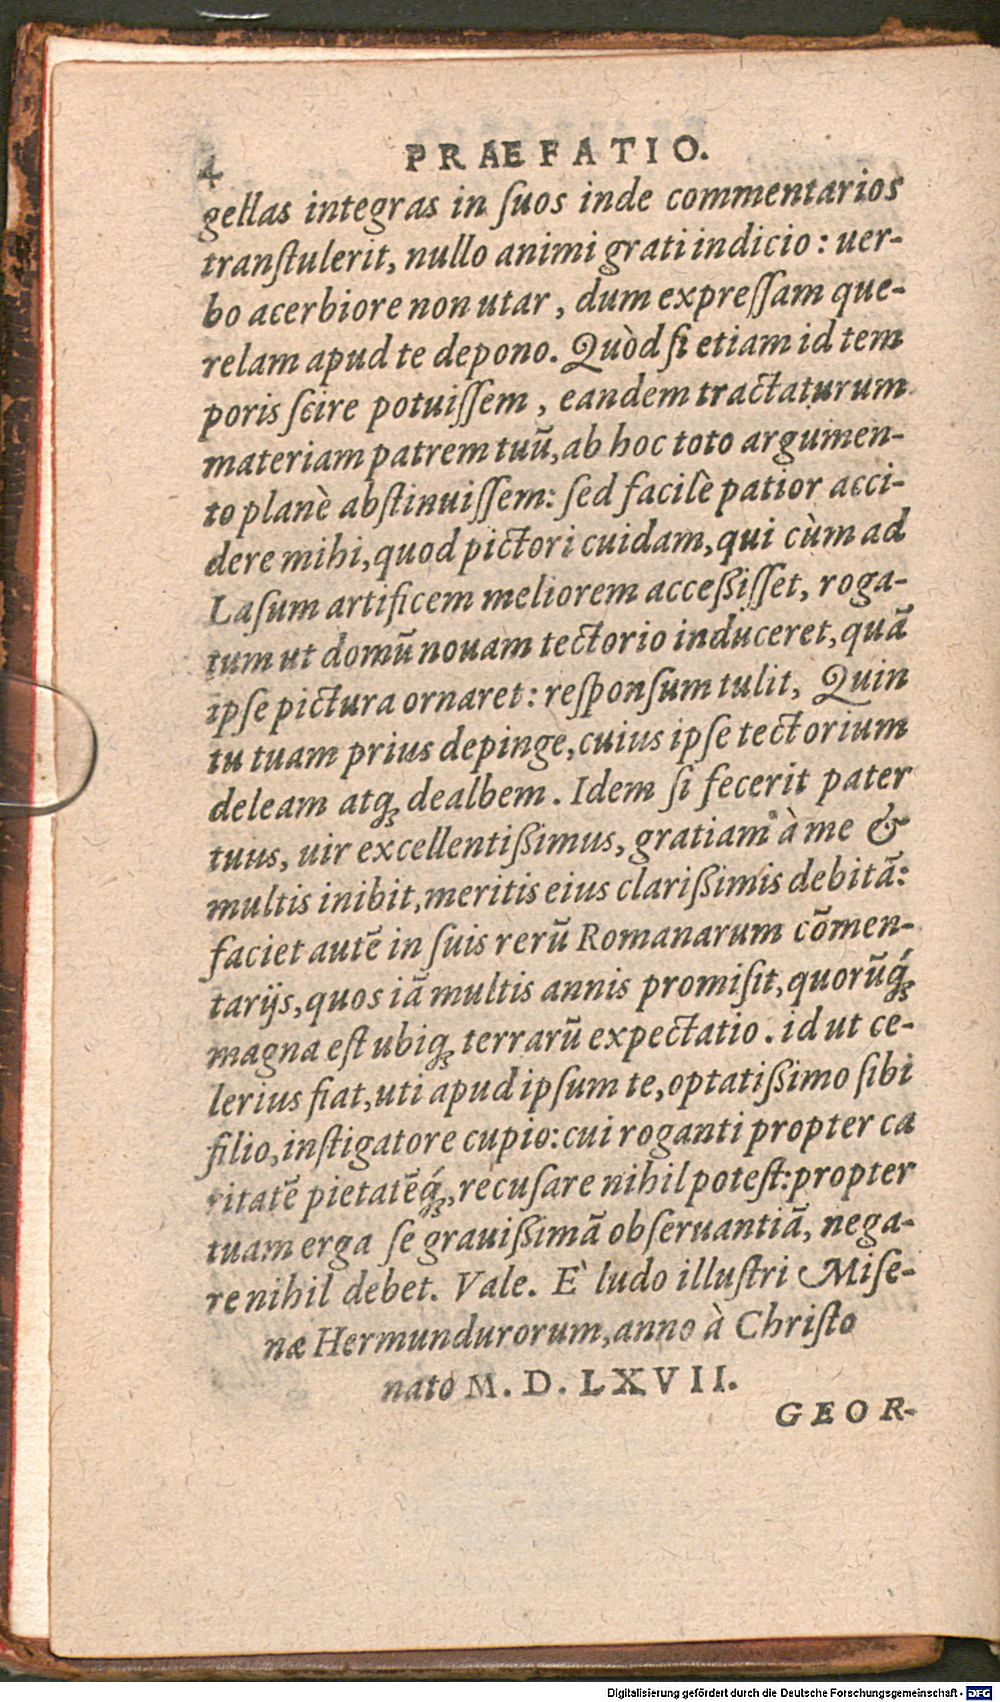 4 PRAEFATIO.
gellas integras in ſuos inde commentarios
tranſtulerit, nullo animi grati indicio: uer-
bo acerbiore non utar, dum expreſſam que-
relam apud te depono. Quòd ſi etiam id tem
poris ſcire potuiſſem, eandem tractaturum
materiam patrem tuū, ab hoc toto argumen-
to planè abſtinuiſſem: ſed facilè patior acci-
dere mihi, quod pictori cuidam, qui cùm ad
Laſum artificem meliorem acceßiſſet, roga-
tum ut domū nouam tectorio induceret, quā
ipſe pictura ornaret: reſponſum tulit, Quin
tu tuam prius depinge, cuius ipſe tectorium
deleam atq́; dealbem. Idem ſi fecerit pater
tuus, uir excellentißimus, gratiam à me &
multis inibit, meritis eius clarißimis debitā:
faciet autē in ſuis rerū Romanarum cōmen-
tarijs, quos iā multis annis promiſit, quorūq́;
magna eſt ubiq; terrarū expectatio. id ut ce-
lerius fiat, uti apud ipſum te, optatißimo ſibi
filio, inſtigatore cupio: cui roganti propter ca
ritatē pietatēq́;, recuſare nihil poteſt: propter
tuam erga ſe grauißimā obſeruantiā, nega-
re nihil debet. Vale. E` ludo illuſtri Miſe-
næ Hermundurorum, anno à Chriſto
nato M. D. LXVII.
GEOR-
Digitalisierung gefördert durch die Deutsche Forschungsgemeinschaft - DFG